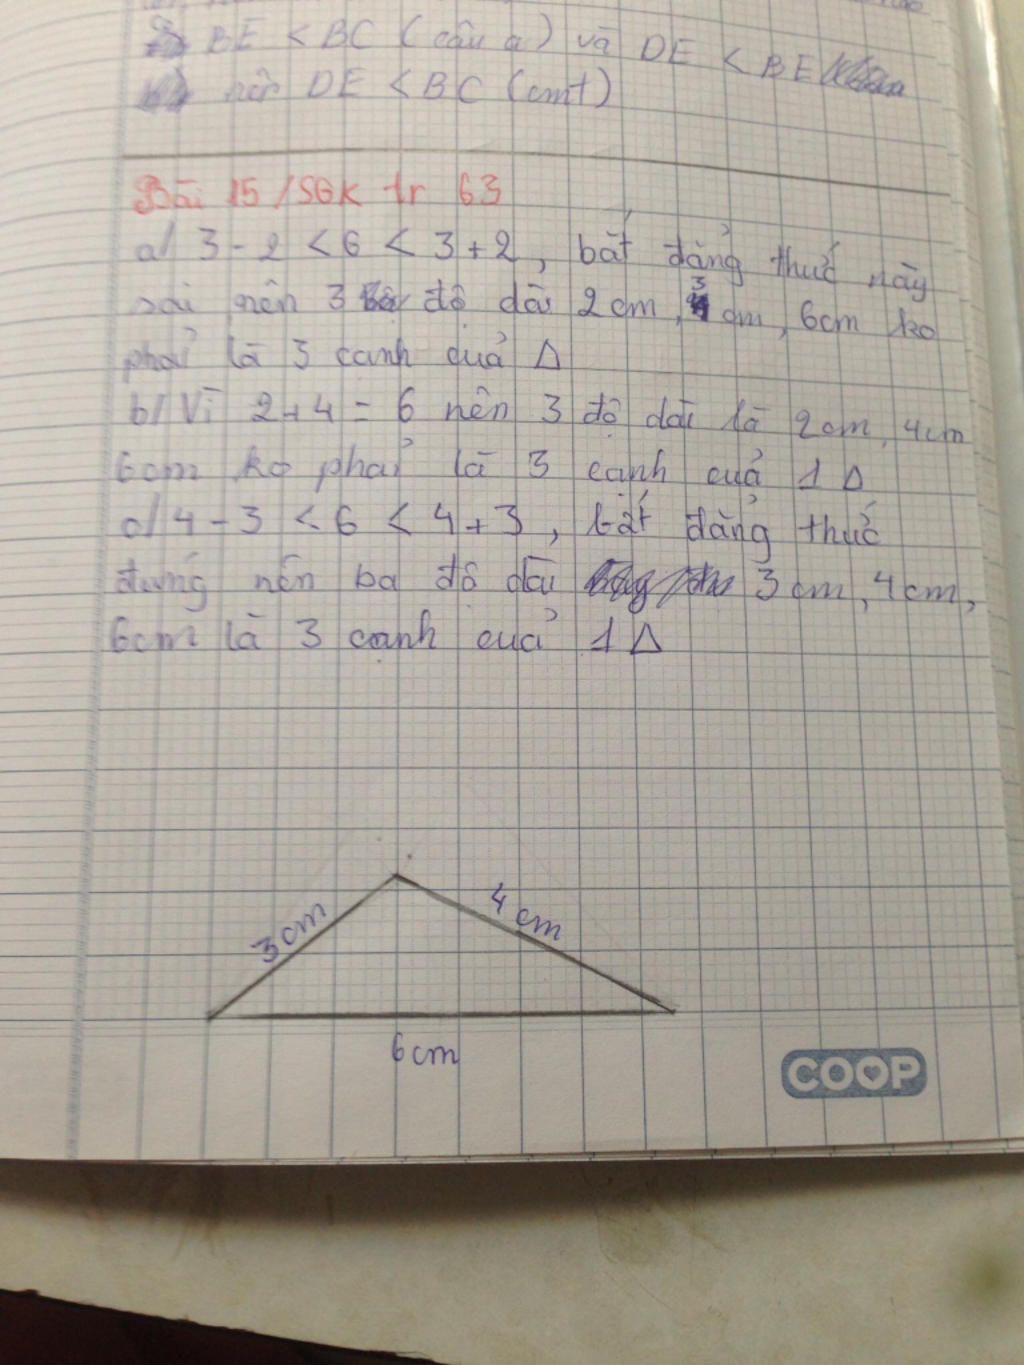 BE < BC (câu a) và DE < BE
nên DE < BC (cmt)
Bài 15 /SGK tr 63
a/ 3 - 2 < 6 < 3 + 2, bất đảng thức này
sai nên 3 độ dài 2cm, 3 cm, 6cm ko
phải là 3 cạnh quả Δ
b/ Vì 2 + 4 = 6 nên 3 độ dài là 2cm, 4cm
6cm ko phải là 3 cạnh quả 1 Δ
c/ 4 - 3 < 6 < 4 + 3, bất đảng thức
đúng nên ba độ dài 3cm, 4cm,
6cm là 3 cạnh quả 1 Δ
3cm
4cm
6cm
COOP